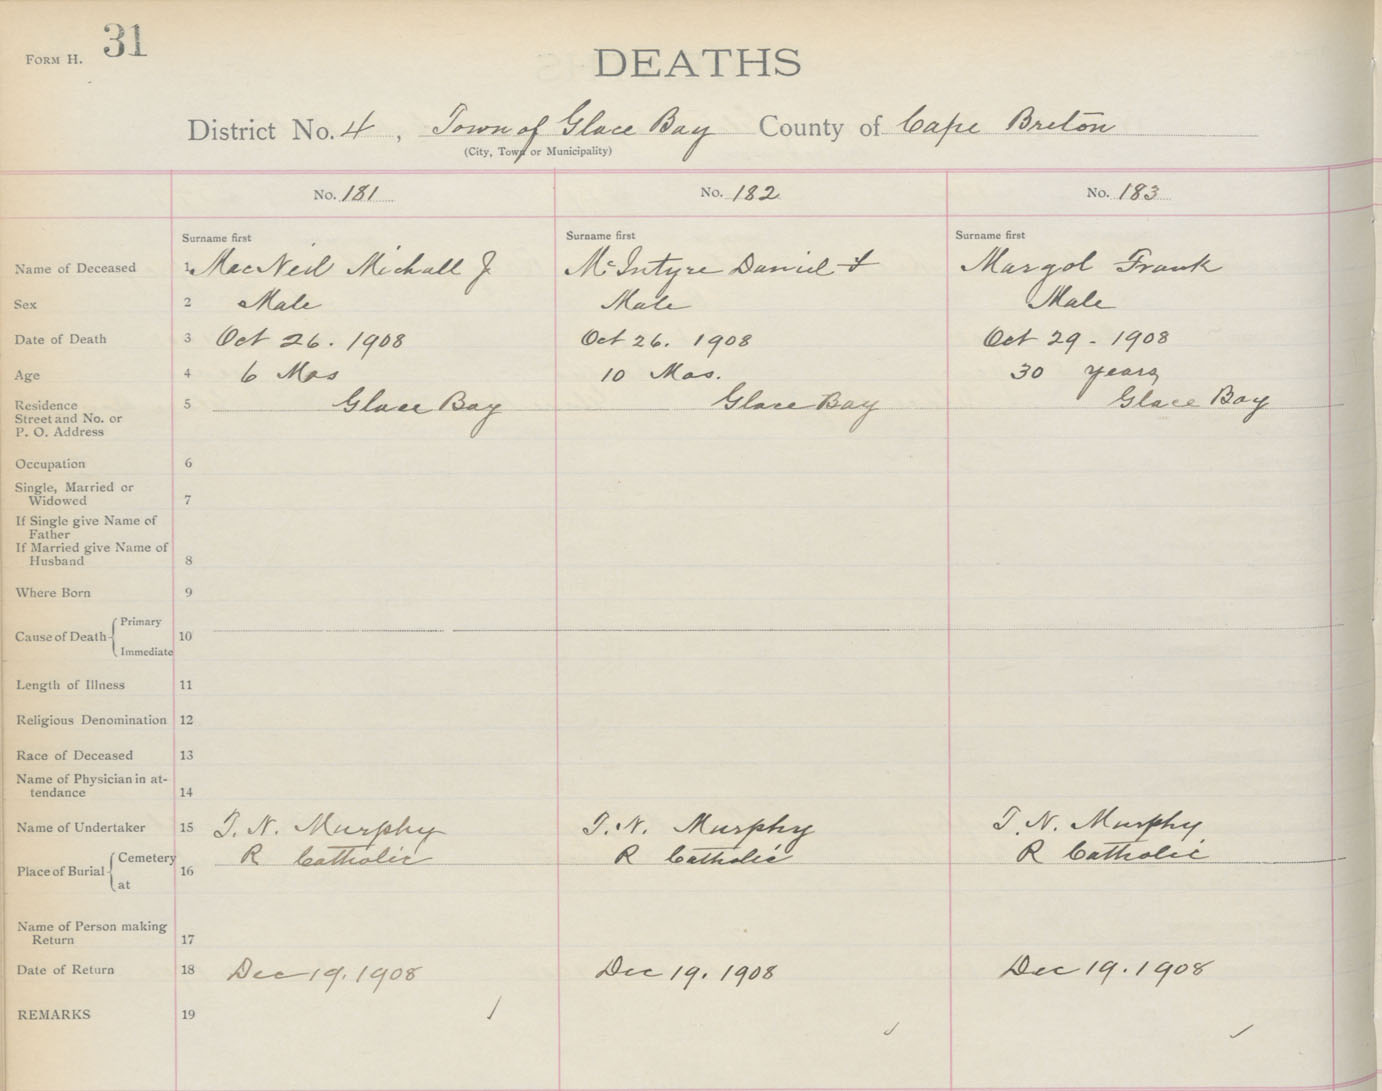 FORM H. 31
DEATHS
District No. 4, Town of Glace Bay County of Cape Breton
(City, Town or Municipality)
No. 181 No. 182 No. 183
Surname first Surname first Surname first
Name of Deceased 1 MacNeil Michall J McIntyre Daniel Margol Frank
Sex 2 Male Male Male
Date of Death 3 Oct 26. 1908 Oct 26. 1908 Oct 29 - 1908
Age 4 6 Mos 10 Mos. 30 years
Residence 5 Glace Bay Glace Bay Glace Bay
Street and No. or
P. O. Address
Occupation 6
Single, Married or
Widowed 7
If Single give Name of
Father
If Married give Name of
Husband 8
Where Born 9
Primary
Cause of Death 10
Immediate
Length of Illness 11
Religious Denomination 12
Race of Deceased 13
Name of Physician in at-
tendance 14
Name of Undertaker 15 T. N. Murphy T. N. Murphy T. N. Murphy
Cemetery R Catholic R Catholic R Catholic
Place of Burial 16
at
Name of Person making
Return 17
Date of Return 18 Dec 19. 1908 Dec 19. 1908 Dec 19. 1908
REMARKS 19